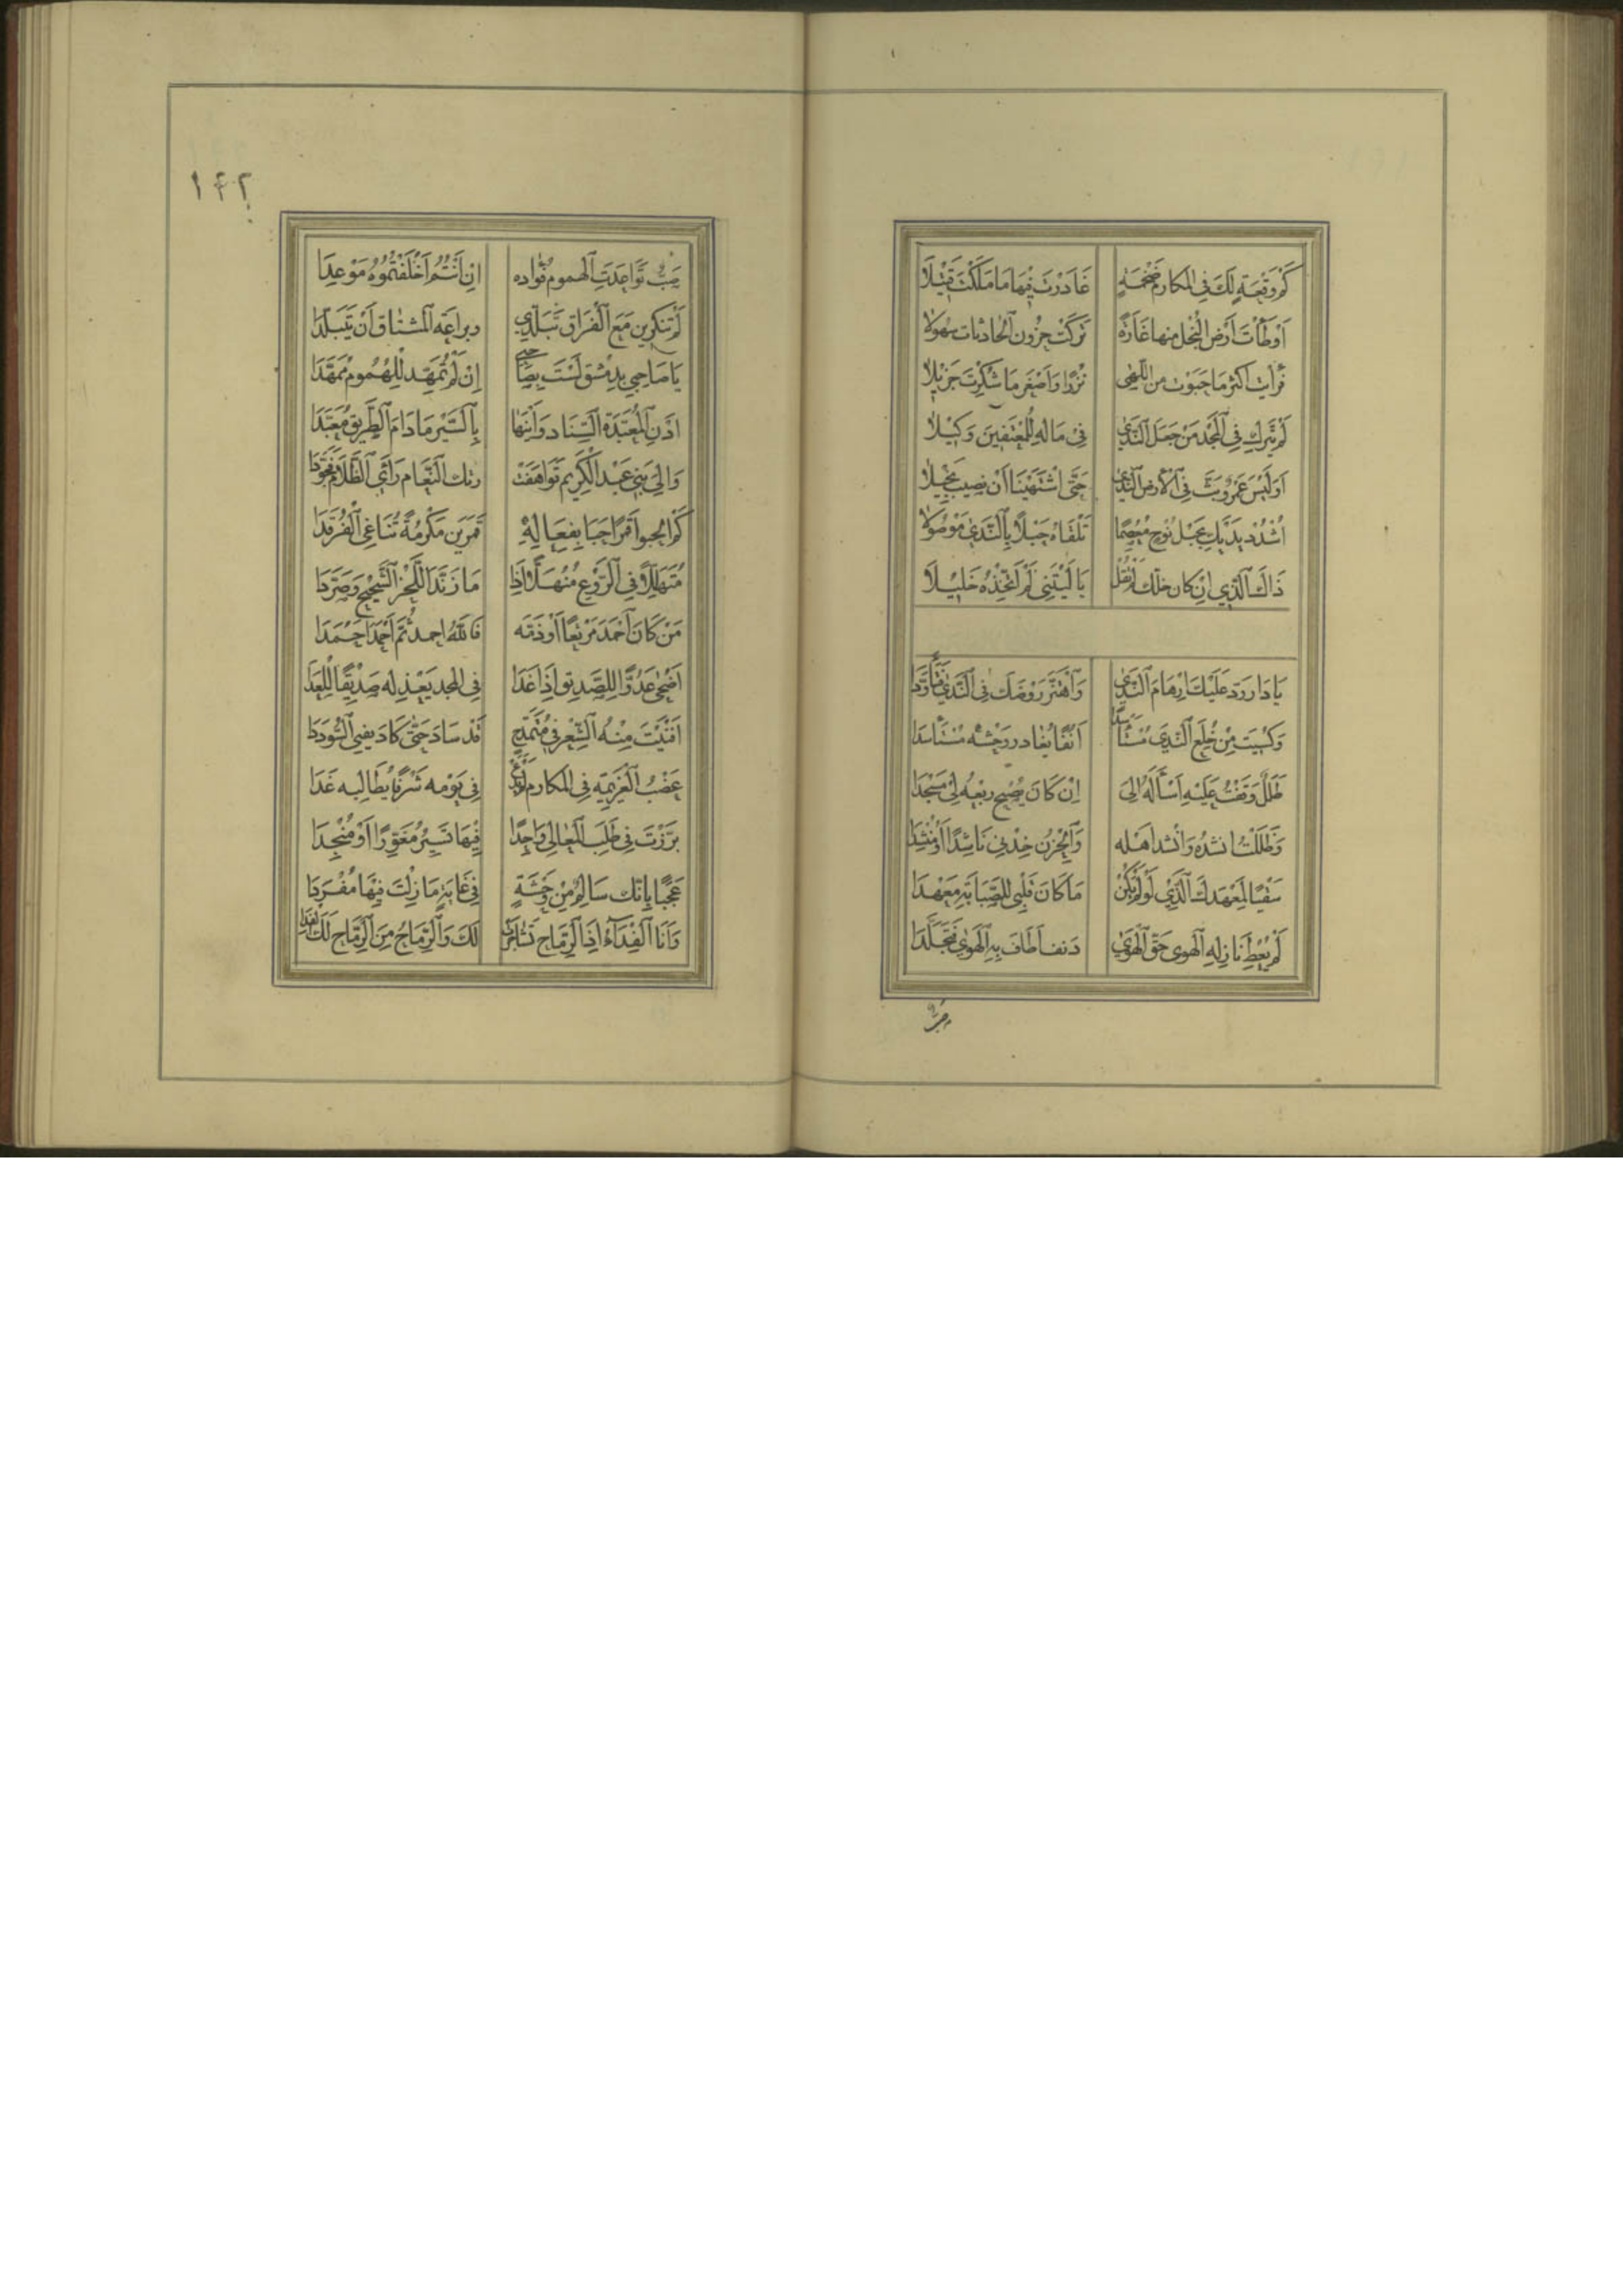 كَمْ وَقْعَةٍ لَكَ فِي المكارم ضَخْمَةٍ غَادَرْتَ فِيْهَا مَا مَلَكْتَ قَتِيْلًا
اَوْطَأْتَ أَرْضَ الْبُخْلِ منها غَارَةً تَرَكَتْ حُزُونَ الحادثات سُهولا
فَرَأيت اكثر مَا حَبَوْت من اللهى نَزْرًا وَاَصْغَرَ مَا شَكَرْت جَزِيْلا
لَمْ يَتَّرِك فِي الْمَجْدِ مَنْ جَعَلَ النَّدَى فِي مَالِهِ لِلْمُعْتَفِيْنَ وَكِيْلا
اَوَلَيْسَ عَمْرٌو بَثَّ فِي الْاَرض النَّدَى حَتَّى اشْتَهَيْنَا اَنْ نصِيب بَخِيْلا
اُشْدُدْ يَدَيْكَ بِحَبْلِ نُوحٍ مُعْصِمًا تَلْقَاهُ حَبْلًا بِالنَّدَى مَوْصُولا
ذَاكَ الَّذِي اِنْ كان خلّك لَمْ تَقُل يَا لَيْتَنِي لَمْ اَتَّخِذْهُ خَلِيْلَا
يَا دَار درد عَلَيْكَ اِرْهَامَ النَّدَى وَاهْتَزَّ رَوْضُك فِي النَّدَى فَتَأَوَّدَا
وَكُسِيت مِنْ خُلَع النَّدَى مُسْتَأْسِدًا اُنُفًا يُغادر وَحْشُه مُسْتَأْسِدَا
طَلَلٌ وَقَفْتُ عَلَيْهِ اَسْأَلُهُ اِلَى اِنْ كَادَ يُصْبِحِ رَبْعُهُ لِيْ مَسْجِدَا
وَظَلَلْتُ انشدُهُ وَانْشد اَهْلَه وَالْحُزْن خِدْنِي نَاشِدًا اَوْ مُنْشِدَا
سَقْيًا لِمَعْهَدِكَ الَّذِي لَوْ لَمْ يَكُنْ مَا كَانَ قَلْبِي لِلصَّبَابَةِ مَعْهَدَا
لَمْ يُعْطِ نَازِلَةِ الْهوى حَقّ الْهَوى دَنِفٌ اَطَافَ بِهِ الْهَوَى فَتَجَلَّدَا
صَبّ
١٤٢
صَبّ تَوَاعَدَتِ الهموم فُؤاده اِنْ اَنْتُمُ اَخْلَفْتُمُوهُ مَوْعِدَا
لَمْ تُنكِرِين مَعَ الْفِرَاق تَبَلُّدِي وبراعَة المشتاق اَنْ يَتَبَلَّدَا
يَا صَاحِبي بِدِمَشْق لَسْتَ بِصَاحِبي اِنْ لَمْ تُمَهِّد لِلْهُمُوم مُمَهَّدَا
اذنِ الْمُعَبَّدَةَ السِّنَاد وَاَنْئِهَا بِالسَّيْرِ مَا دَامَ الطَّرِيق مُعَبَّدَا
وَاِلَى بَنِي عَبْد الْكَرِيم تَوَاهَقَتْ رتك النَّعَام رَاَى الظَّلَام فَخَوَّدَا
كَمْ انجبوا قَمَرًا حَبَا بِفَعَالِهِ قَمَرَيْن مَكْرُمَةً تُنَاغِي الْفَرْقَدَا
مُتَهَلِّلًا فِي الرَّوْعِ مُنْهَلًّا اِذَا مَا زَنَّدَ اللَّحِزُ الشَّحِيْح وَصَرَّدَا
مَنْ كَانَ اَحْمَدَ مَرْتَعًا اَوْ ذَمَّه فَاللهَ احمد ثُمَّ اَحْمَدَ اَحْمَدَا
اَضْحَى عَدُوًّا لِلصَّدِيق اِذَا غَدَا فِي المجد يَعْذِله صَدِيْقًا لِلْعِدَا
اَفْنَيْتُ مِنْهُ الشِّعْر فِي مُتَمَدَّحٍ قَدْ سَادَ حَتَّى كَادَ يفني السُّودَدَا
عَضْبُ الْعَزِيمَةِ فِي المكارم لَمْ يَدَعْ فِي يَوْمه شَرَفًا يُطَالِبه غَدَا
بَرَّزْتَ فِي طَلَبِ الْمَعَالِي وَاحِدًا فِيْهَا تَسِيْرُ مُغَوِّرًا اَوْ مُنْجِدَا
عَجَبًا بِاَنَّك سَالِمٌ مِنْ وَحْشَةٍ فِي غَايَةٍ مَا زِلْتَ فِيْهَا مُفْرَدَا
وَاَنَا الْفِدَاءُ اِذَا الرِّمَاح تَشَاجَرَتْ لَكَ وَالرِّمَاحُ مِنَ الرِّمَاح لَكَ الْفِدَا